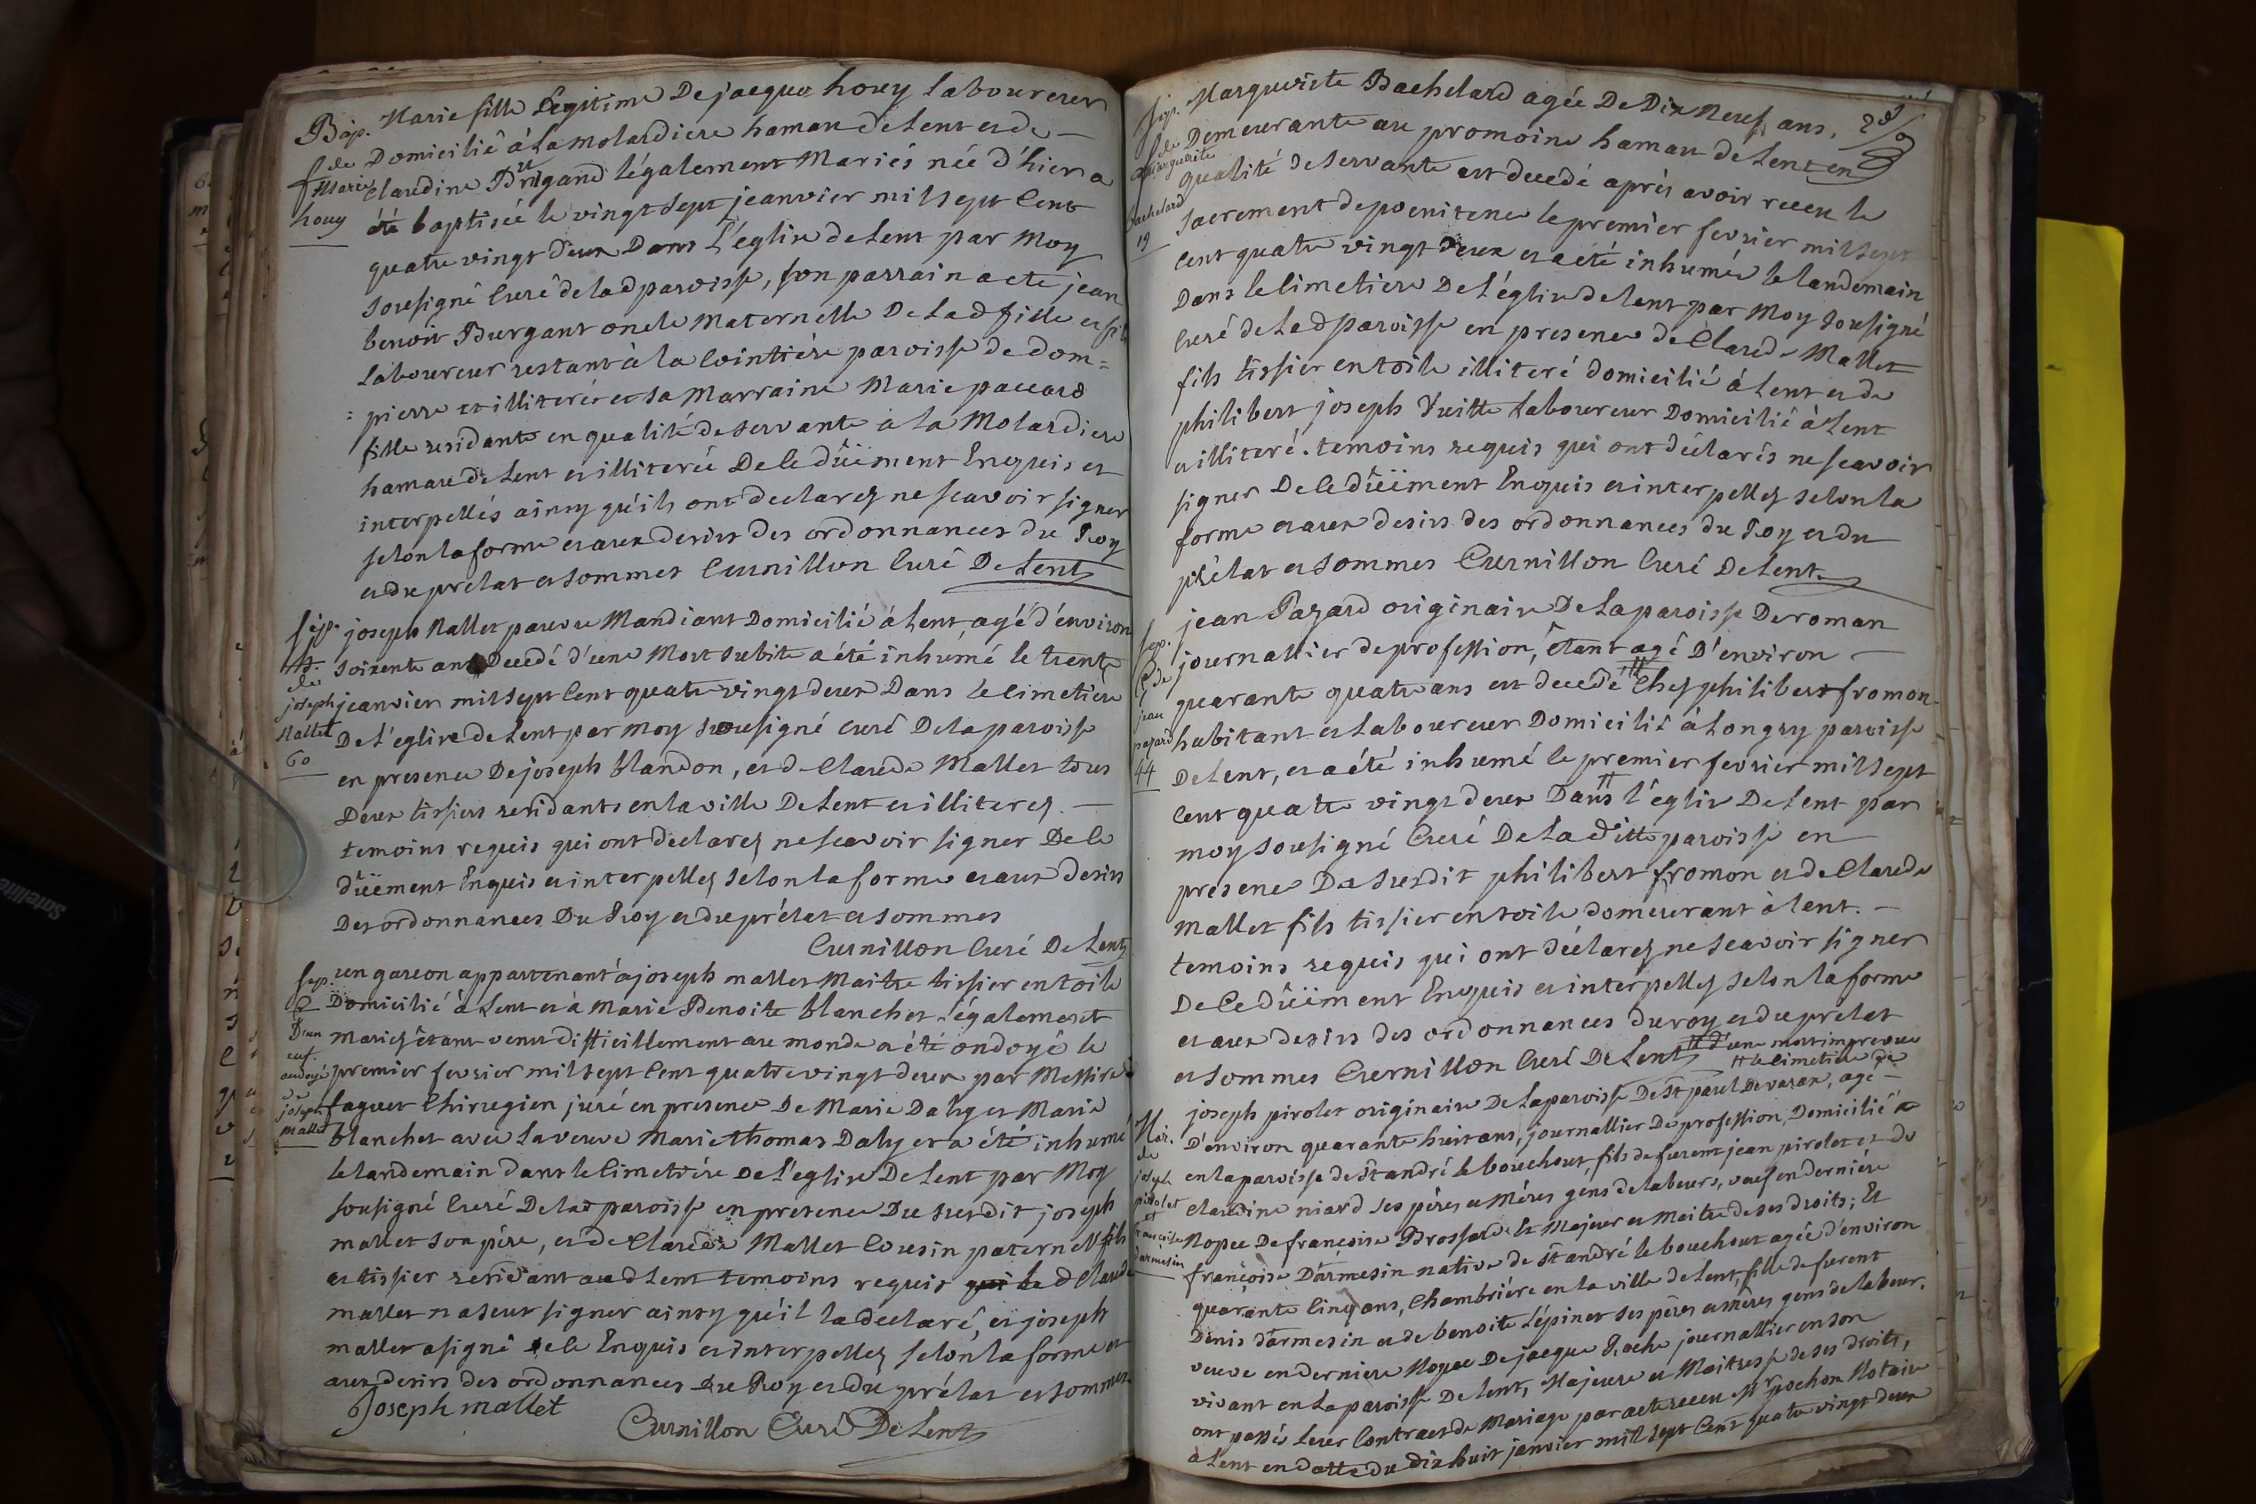 Bap. Marie fille Legitime De jaeque houy Laboureur
f de Domicilié à la molardiere hamau de Lent et de
Marie Claudine Burgand légalement Mariés née d'hier a
houy été baptisée le vingt sept jeanvier mil sept Cent
quatre vingt deux Dans L'églize de Lent par Moy
sousigné Curé de lad paroisse, son parrain a eté jean
benoit Burgant oncle Maternelle De Lad fille et
Laboureur restant à la Cointière paroisse de dom=
=pierre et illiteré et sa Marraine Marie paccard
fille residante en qualité de servante à la Molardiere
hamau de Lent et illiterée De Ce düëment Enquis et
interpellés ainsy qu'ils ont declarez ne scavoir signer
selon la forme et aux desirs des ordonnances du Roy
et du prélat et sommes Curnillon Curé De Lent
sep. joseph Mallet pauvre Mandiant Domicilié à Lent agé d'environ
h. soixente ans Decedé d'une Mort subite a été inhumé le trente
de joseph jeanvier mil sept Cent quatre vingt deux Dans le Cimetiere
Mallet De L'eglize de Lent par moy sousigné curé De la paroisse
60 en presence De joseph blandon, et de Claude Mallet tous
Deux tissiers residants en la ville De Lent et illiterez.
temoins requis qui ont declarez ne scavoir signer De Ce
düëment Enquis et interpellez selon la forme et aux desirs
Des ordonnances Du Roy et du prélat et sommes
Curnillon Curé De Lent
sep. un garcon appartenant à joseph mallet Maitre tissier en toile
Domicilié à Lent et a Marie Benoite blanchet Légalement
D'un mariez étant venu difficillement au monde a été ondoyé le
enf. ondoyé premier fevrier mil sept Cent quatre vingt deux par Messire
de joseph faguet Chirugien juré en presence De Marie Daly et Marie
mallet blanchet avec la veuve Marie thomas Daly et a été inhumé
le landemain dans le Cimetiére De L'eglize De Lent par Moy
sousigné Curé De lad paroisse en presence Du susdit joseph
mallet son pére, et de Claude Mallet Cousin paternel fils
et tissier residant aud Lent temoins requis qui le d Claude
mallet na seut signer ainsy qu'il la declaré, et joseph
mallet a signé de ce Enquis et interpellez selon la forme et
aux desirs des ordonnances Du Roy et du prélat et sommes
Joseph mallet
Curnillon Curé De Lent
sep. Marguerite Bachelard agée De Dix Neuf ans,
de Marguerite Demeurante au promoine hamau de Lent en
qualité de servante est decedé aprés avoir receu le
Bachelard sacrement de poenitence le premier fevrier mil sept
19 Cent quatre vingt deux et a été inhumée le landemain
Dans le Cimetiere De L'églize de Lent par Moy sousigné
Curé de Lad paroisse en presence de Claude Mallet
fils tissier en toile illiteré domicilié à Lent et de
philibert joseph Vuitte Laboureur Domicilié à Lent
et illiteré. temoins requis qui ont déclarés ne scavoir
signer De Ce düëment Enquis et interpellez selon la
forme et aux desirs des ordonnances du Roy et du
prélat et sommes Curnillon Curé De Lent.
jean Pazard originaire De La paroisse De roman
sep. journallier de profession, étant agé D'environ
de quarante quatre ans est decedé # Chez philibert fromon
jean pazard habitant et Laboureur Domicilié à Longry paroisse
44 De Lent, et a été inhumé le premier fevrier mil sept
Cent quatre vingt deux Dans # l'eglize De Lent par
moy sousigné Curé De La ditte paroisse en
presence Du susdit philibert fromon et de Claude
mallet fils tissier en toile domeurant à Lent.
temoins requis qui ont déclarez ne scavoir signer
De Ce düëment Enquis et interpellez selon la forme
et aux desirs des ordonnances du roy et du prélat
et sommes Curnillon Curé De Lent # d'une mort imprevue
# le Cimetiere de
joseph pirolet originaire De La paroisse De St paul De varax, agé
Mar. D'environ quarante huit ans, journallier De profession, Domicilié
de joseph en la paroisse de St andré le bouchout, fils de furent jean pirolet et de
pirolet Claudine niard ses péres et Méres gens de labeurs, veuf en derniére
et francoise Nopce De francoise Brossard Et Majeur et Maitre de ses droits; Et
Darmesin françoise Darmesin native de St andré le bouchout agée d'environ
quarante Cinq ans, Chambriére en la ville de Lent, fille de furent
Denis darmesin et de benoite Lépinet ses péres et méres gens de labeur,
veuve en derniere Nopce De jaeque Roche journallier en son
vivant en La paroisse De Lent, Majeure et Maitresse de ses droits,
ont passés Leur Contract de Mariage par acte receu Mr pochon Notaire
à Lent en datte du dix huit janvier mil sept Cent quatre vingt deux